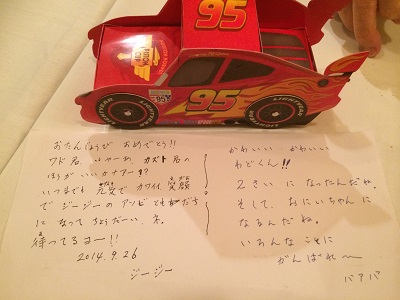 95
PISTON
CUP
95
LIGHTYEAR
LIGHTYEAR
おたんじょうび おめでとう!!
ワド君 いやーめ、カズト君の
ほうが いいかナアー!?
いつまでも 元気で カワイイ 笑顔
で ジージーの アソビ とも
に なって ちょうだーい、ネ。
待ってるヨー!!
2014.9.26
ジージー
かわいい かわいい
わどくん!!
2さいに なったんだね。
そして、おにいちゃんに
なるんだね。
いろんな ことに
がんばれ〜
バアバ